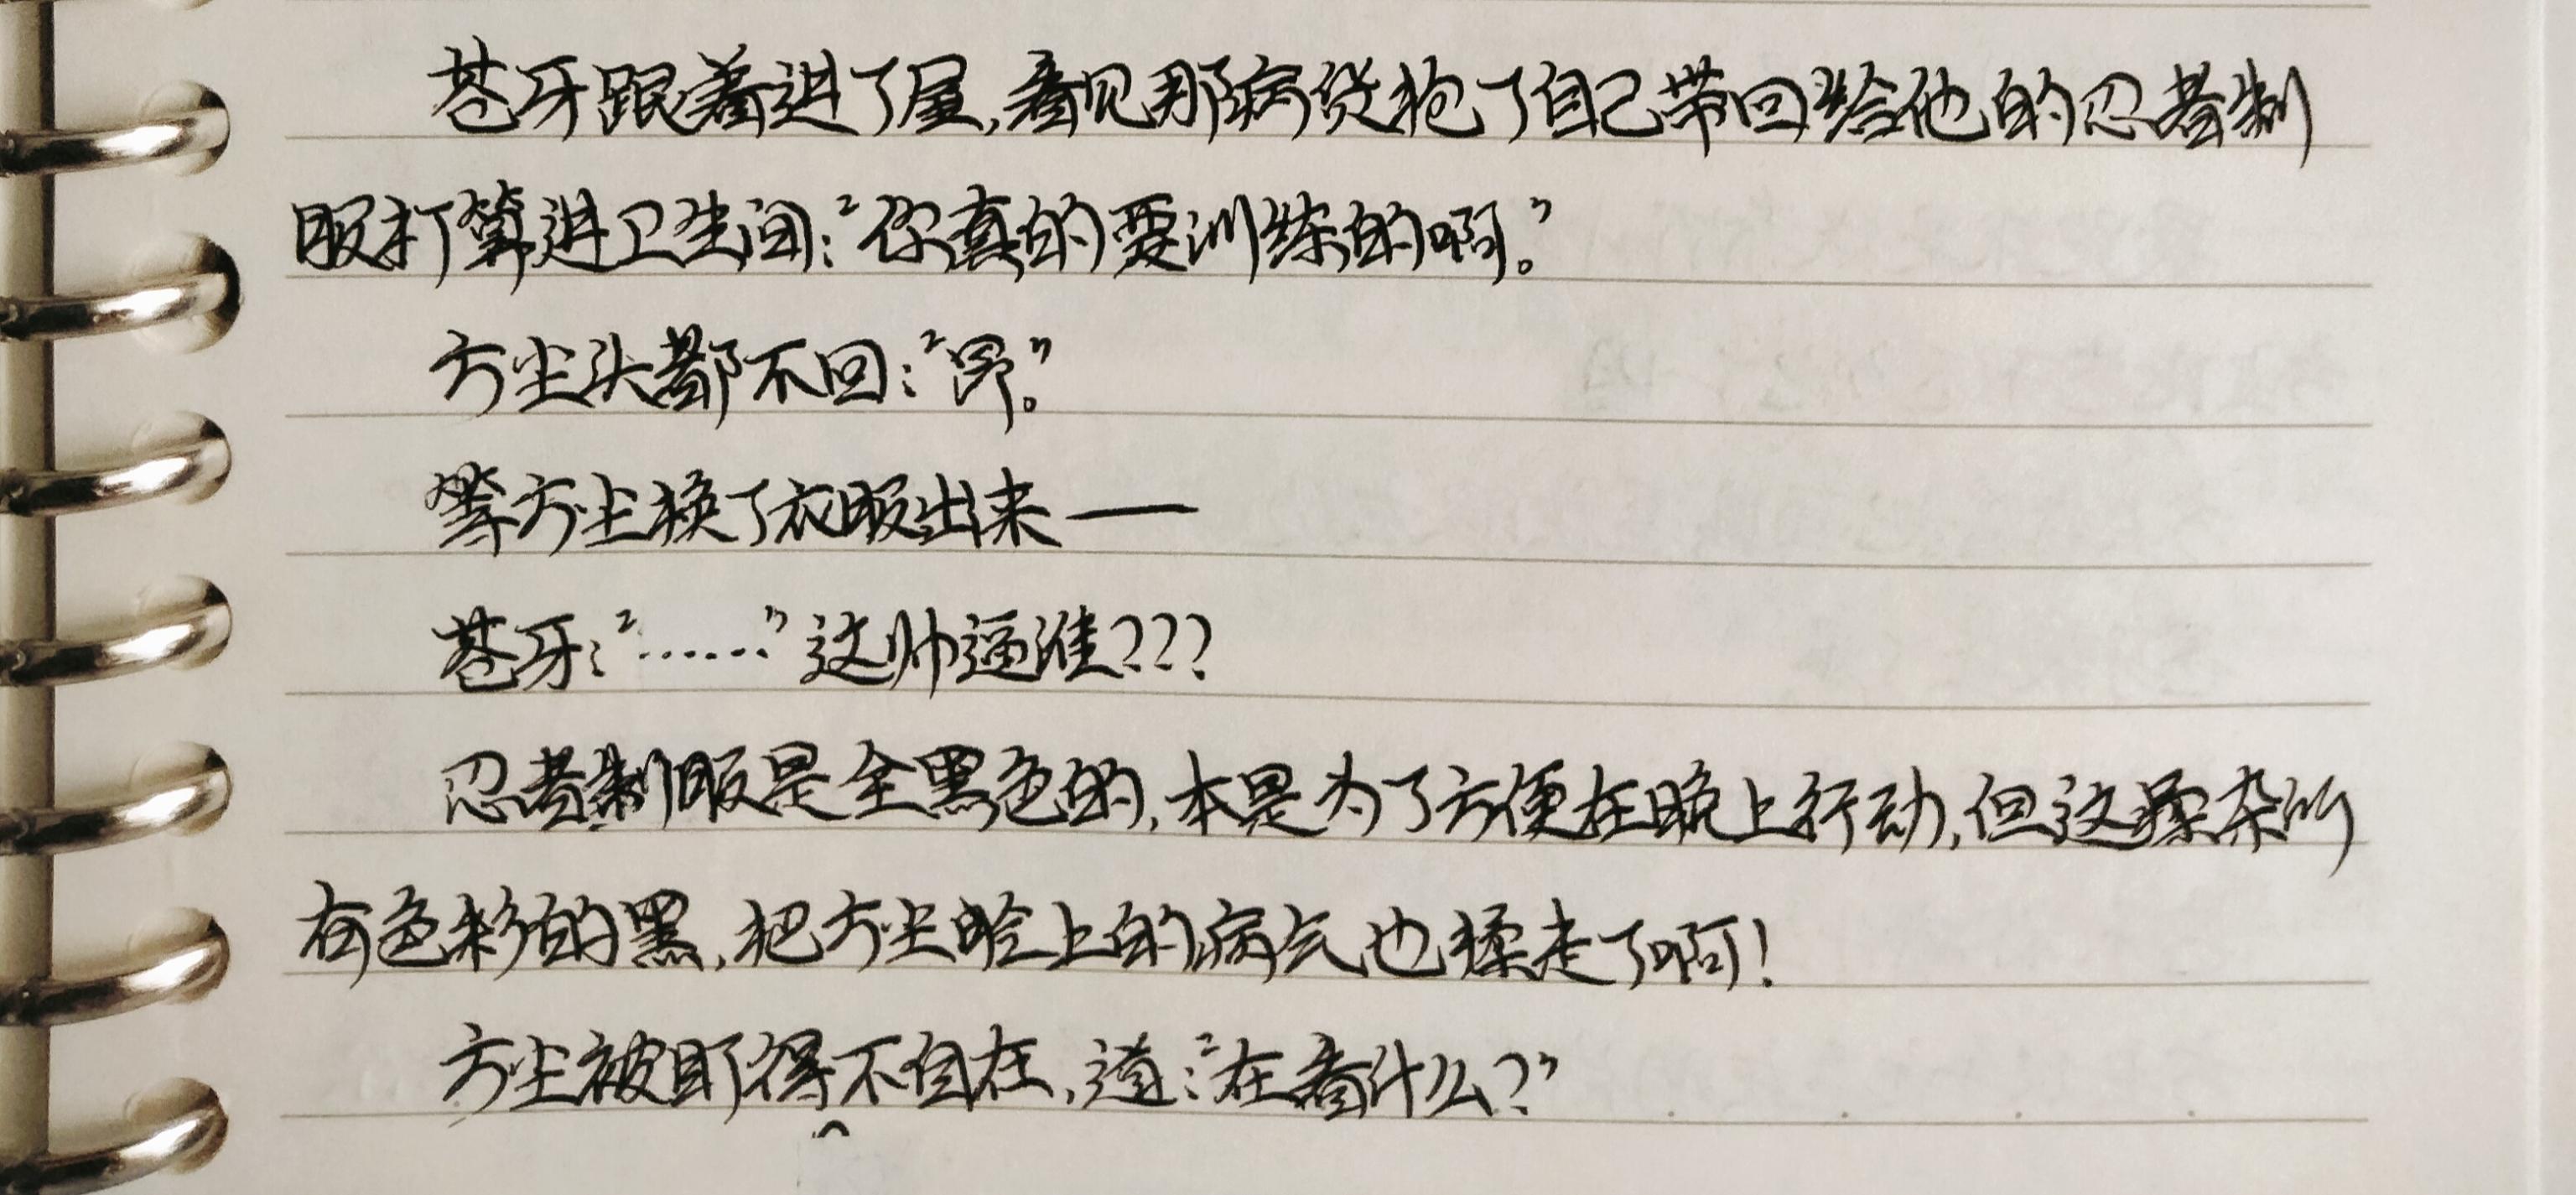 苍牙跟着进了屋,看见那病货抱了自己带回给他的忍者制
服打算进卫生间:“你真的要训练的啊。”
方尘头都不回:“昂。”
等方尘换了衣服出来——
苍牙:“……”这帅逼谁???
忍者制服是全黑色的,本是为了方便在晚上行动,但这揉杂所
有色彩的黑,把方尘脸上的病气也揉走了啊!
方尘被盯得不自在,道:“在看什么?”